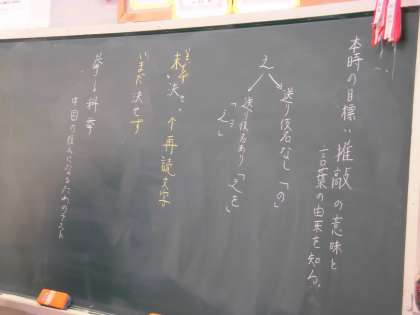 本時の目標：推敲の意味と
言葉の由来を知ろう。
之
送り仮名なし「の」
送り仮名あり「之を」
「これ」
未決 再読文字
いまだ決せず
挙 科挙
中国の役人になるためのテスト